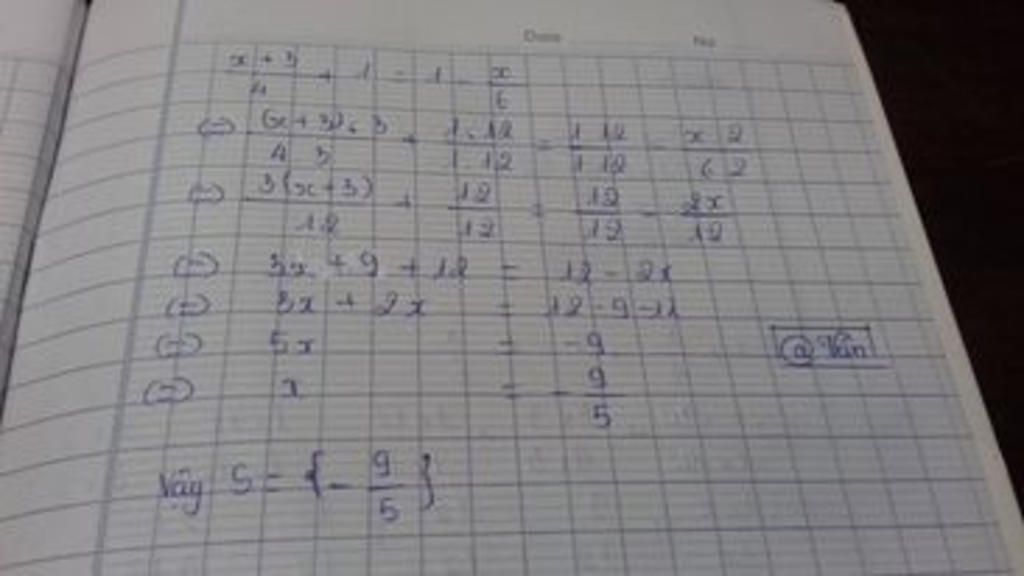 Date No
(x + 3)/4 + 1 = 1 - x/6
(=) (x+3).3/4.3 + 1.12/1.12 = 1.12/1.12 - x.2/6.2
(=) 3(x+3)/12 + 12/12 = 12/12 - 2x/12
(=) 3x + 9 + 12 = 12 - 2x
(=) 3x + 2x = 12-9-12
(=) 5x = -9
@ Vân
(=) x = - 9/5
Vậy S = { - 9/5 }